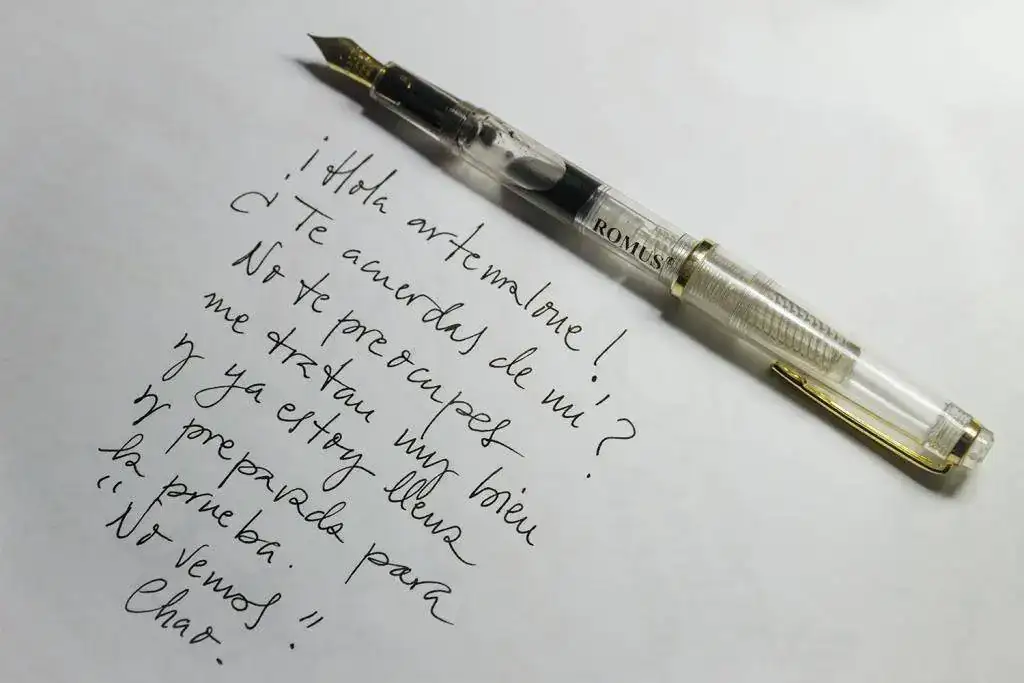 ¡Hola artemalone!
¿Te acuerdas de mí?
No te preocupes
me tratan muy bien
y ya estoy llena
y preparada para
la prueba.
"No vemos".
Chao.
ROMUS®